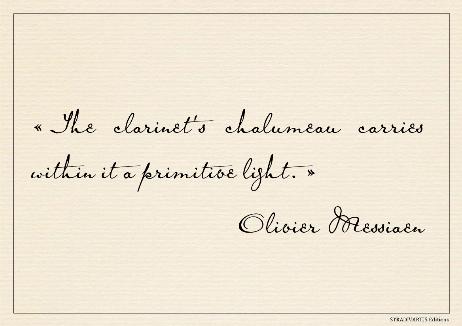 « The clarinet's chalumeau carries
within it a primitive light. »
Olivier Messiaen
STRADIVARIUS Editions